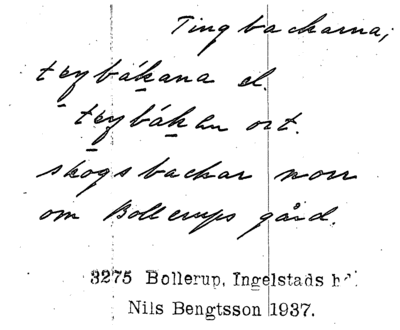 Tingbackarna;
tıŋbákana el.
tıŋbákan ort.
skogsbackar norr
om Bollerups gård.
3275 Bollerup, Ingelstads hd.
Nils Bengtsson 1937.